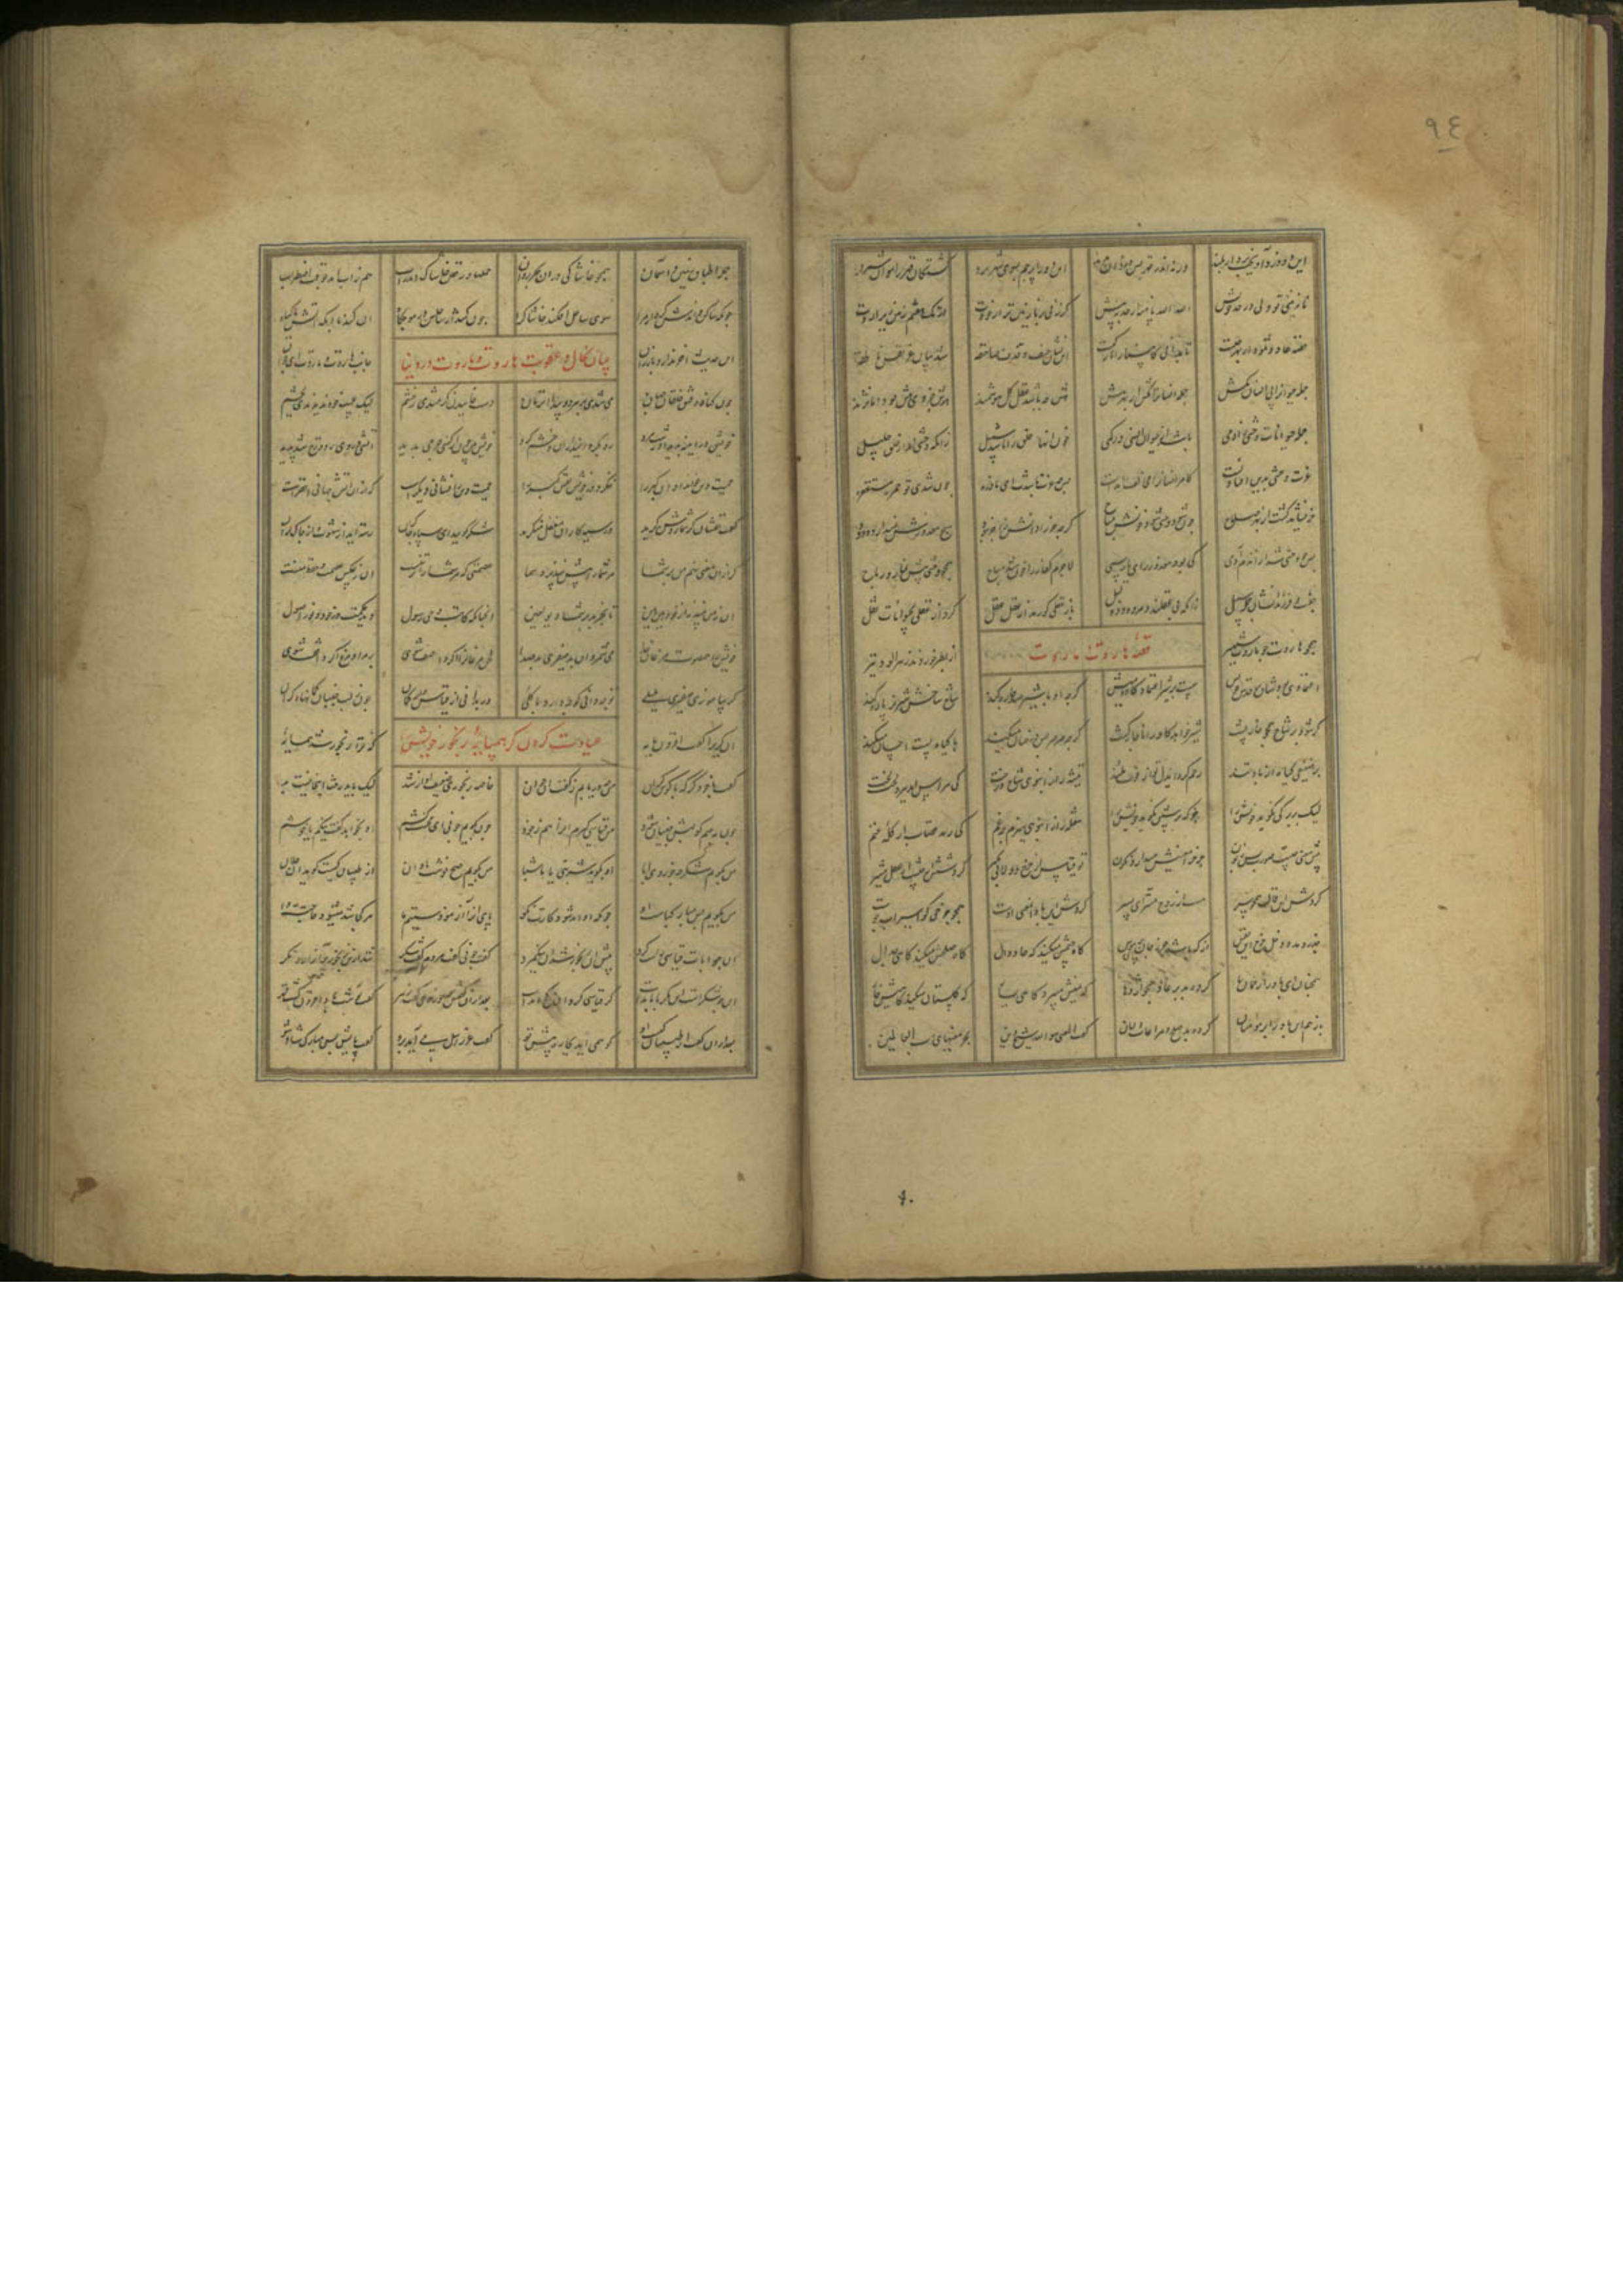 ٩٤
این دو دزد آویخت بر دار بلند ورنه اندر قهر بس دزدان بدند این دو را پرچم بسوی شهر برد کشتگان قهر را نتوان شمرد
نازنینی تو ولی در حد خویش الله الله پا منه از حد بیش گر زنی بر نازنین تر از خودت در تک هفتم زمین زیر آردت
قصه عاد و ثمود از بهر چیست تا بدانی کانبیا را نازکیست این نشان خسف و قذف و صاعقه شد بیان عز نفس ناطقه
جمله حیوان را پی انسان بکش جمله انسان را بکش از بهر هش هش چه باشد عقل کل هوشمند هوش جزوی هش بود اما نژند
جمله حیوانات وحشی ز آدمی باشد از حیوان انسی در کمی خون آنها خلق را باشد سبیل زانکه وحشی اند از عقل جلیل
عزت وحشی بدین افتاد پست که مر انسان را مخالف آمدست پس چه عزت باشدت ای نادره چون شدی تو حمر مستنفره
خر نشاید کشت از بهر صلاح چون شود وحشی شود خونش مباح گرچه خر را دانش زاجر نبود هیچ معذورش نمیدارد ودود
پس چو وحشی شد از آن دم آدمی کی بود معذور ای یار سمی لاجرم کفار را خون شد مباح همچو وحشی پیش نشاب و رماح
جفت و فرزندانشان جمله سبیل زانکه بی عقلند و مردود و ذلیل باز عقلی کو رمد از عقل عقل کرد از عقلی بحیوانات نقل
همچو هاروت و چو ماروت شهیر از بطر خوردند زهرآلود تیر
قصه هاروت و ماروت
اعتمادی بودشان بر قدس خویش چیست بر شیر اعتماد گاومیش گرچه او با شیر صد چاره کند شاخ شاخش شیر نر پاره کند
گر شود پر شاخ همچو خارپشت شیر خواهد گاو را ناچار کشت گرچه صرصر بس درختان میکند با گیاه پست احسان میکند
بر ضعیفی گیاه آن باد تند رحم کرد ای دل تو از قوت ملند تیشه را ز انبوهی شاخ درخت کی هراس آید ببرد لخت لخت
لیک بر برگی نکوبد خویش را جز که بر نیشی نکوبد نیش را شعله را ز انبوهی هیزم چه غم کی رمد قصاب از گله غنم
پیش معنی چیست صورت بس زبون چرخ را معنیش میدارد نگون تو قیاس از چرخ دولابی بگیر گردشش از کیست از عقل مشیر
گردش این قالب همچون سپر هست از روح مستر ای پسر گردش این باد از معنی اوست همچو چرخی کو اسیر آب جوست
جر و مد و دخل و خرج این نفس از که باشد جز ز جان پر هوس گاه جیمش میکند گه حا و دال گاه صلحش میکند گاهی جدال
همچنان این باد را یزدان ما کرده بد بر عاد همچو اژدها گه یمینش میبرد گاهی یسار گه گلستان میکند گاهیش خار
باز هم آن باد را بر مومنان کرده بد صلح و مراعات و امان گفت المعنی هو الله شیخ دین بحر معنیهای رب العالمین
جمله اطباق زمین و آسمان همچو خاشاکی در آن بحر روان حملها و رقص خاشاک اندر آب هم ز آب آمد بوقت اضطراب
چونکه ساکن خواهدش کرد از مرا سوی ساحل افکند خاشاک را چون کشد از ساحلش در موجگاه آن کند با او که آتش با گیاه
این حدیث آخر ندارد باز ران جانب هاروت و ماروت ای جوان
بیان نکال و عقوبت هاروت و ماروت در دنیا
چون گناه و فسق خلقان جهان می شدی بر هر دو پیدا آن زمان دست خاییدن گرفتندی ز خشم لیک عیب خود ندیدندی بچشم
خویش در آیینه دید آن زشت مرد رو بگردانید از آن و خشم کرد خویش بین چون از کسی جرمی بدید آتشی در وی ز دوزخ شد پدید
حمیت دین خواند او آن کبر را ننگرد در خویش نفس گبر را حمیت دین را نشانی دیگرست که از آن آتش جهانی اخضرست
گفت حقشان گر شما روشن گرید در سیه کاران مغفل منگرید شکر گویید ای سپاه و چاکران رسته اید از شهوت و از چاک ران
گر از آن معنی نهم من بر شما مر شما را بیش نپذیرد سما عصمتی که مر شما را در تنست آن ز عکس عصمت و حفظ منست
آن ز من بینید نز خود هین و هین تا نچربد بر شما دیو لعین آنچنانکه کاتب وحی رسول دید حکمت در خود و نور اصول
خویش را هم صوت مرغان خدا می شمرد آن بد صفیری چون صدا لحن مرغان را اگر واصف شوی بر مراد مرغ کی واقف شوی
گر بیاموزی صفیر بلبلی تو چه دانی کو چه دارد با گلی ور بدانی از قیاس و از گمان چون ز لب جنبان گمانهای کران
عیادت کردن کر همسایه رنجور خویش را
آن کری را گفت افزون مایه که ترا رنجور شد همسایه
گفت با خود کر که با گوش گران من چه دریابم ز گفت آن جوان خاصه رنجور و ضعیف آواز شد لیک باید رفت آنجا نیست بد
چون ببینم کان لبش جنبان شود من قیاسی گیرم آن را هم ز خود چون بگویم چونی ای محنت کشم او بخواهد گفت نیکم یا خوشم
من بگویم شکر چه خوردی ابا او بگوید شربتی یا ماشبا من بگویم صح نوشت باد آن از طبیبان کیست گوید آن فلان
من بگویم بس مبارک پاست او چونکه او آمد شود کارت نکو پای او را آزمودستیم ما هر کجا شد میشود حاجت روا
این جوابات قیاسی راست کرد پیش آن رنجور شد آن نیک مرد گفت چونی گفت مردم گفت شکر شد از این رنجور پر آزار و نکر
کین چه شکرست این مگر با ما بدست کر قیاسی کرد و آن کژ آمدست بعد از آن گفتش چه خوردی گفت زهر گفت نوشت باد افزون گشت قهر
بعد از آن گفت از طبیبان کیست او کو همی آید بچاره پیش تو گفت عزرائیل می آید برو گفت پایش بس مبارک شاد شو